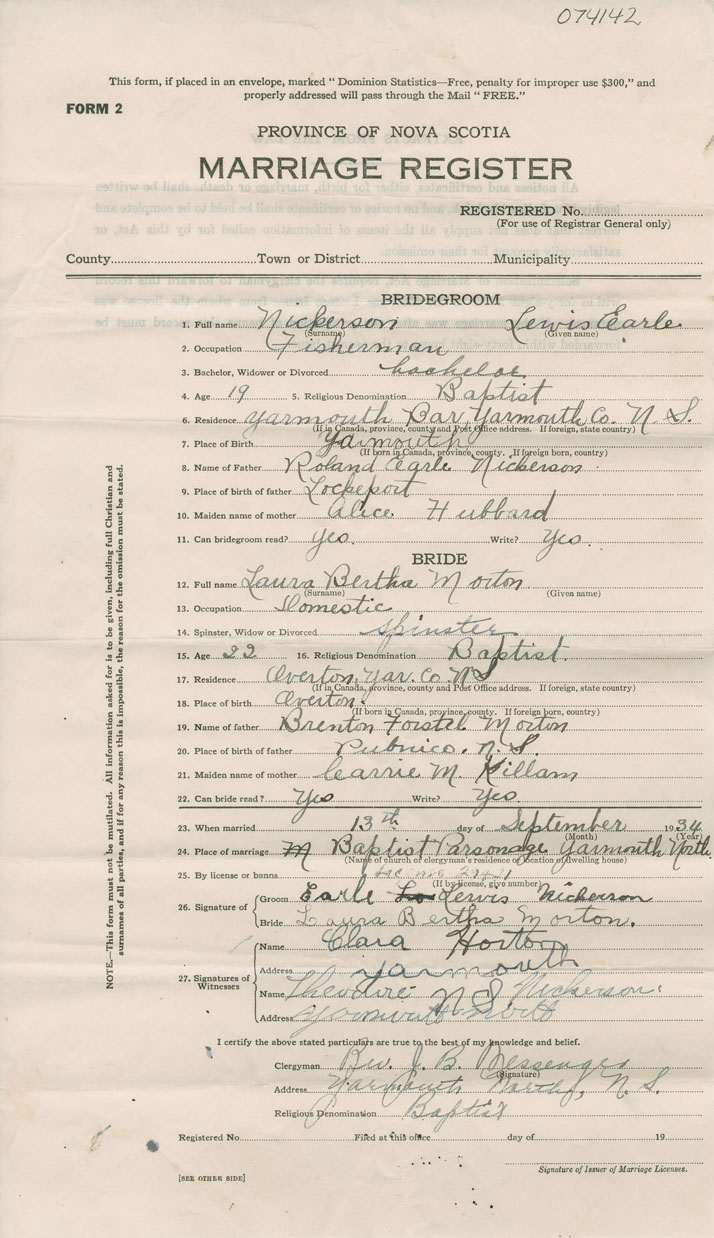 074142
This form, if placed in an envelope, marked " Dominion Statistics—Free, penalty for improper use $300," and
properly addressed will pass through the Mail " FREE."
FORM 2
PROVINCE OF NOVA SCOTIA
MARRIAGE REGISTER
REGISTERED No.
(For use of Registrar General only)
County Town or District Municipality
BRIDEGROOM
1. Full name Nickerson Lewis Earle
(Surname) (Given name)
2. Occupation Fisherman
3. Bachelor, Widower or Divorced bachelor
4. Age 19 5. Religious Denomination Baptist
6. Residence Yarmouth Bar, Yarmouth Co. N. S.
(If in Canada, province, county and Post Office address. If foreign, state country)
7. Place of Birth Yarmouth
(If born in Canada, province, county. If foreign born, country)
8. Name of Father Roland Earle Nickerson
9. Place of birth of father Lockeport
10. Maiden name of mother Alice Hubbard
11. Can bridegroom read? yes. Write? yes.
BRIDE
12. Full name Laura Bertha Morton
(Surname) (Given name)
13. Occupation Domestic
14. Spinster, Widow or Divorced spinster
15. Age 22 16. Religious Denomination Baptist.
17. Residence Overton, Yar. Co. N S
(If in Canada, province, county and Post Office address. If foreign, state country)
18. Place of birth Overton
(If born in Canada, province, county. If foreign born, country)
19. Name of father Brenton Forstel Morton
20. Place of birth of father Pubnico, N. S.
21. Maiden name of mother Carrie M. Killam
22. Can bride read? Yes Write? Yes
23. When married 13th day of September 1934
(Month) (Year)
24. Place of marriage Baptist Parsonage Yarmouth North
(Name of church or clergyman's residence or location of dwelling house)
25. By license or banns
(If by license, give number)
26. Signature of Groom Earle Lewis Nickerson
Bride Laura Bertha Morton.
27. Signatures of Witnesses
Name Clara Horton
Address Yarmouth
Name Theodore N S Nickerson
Address Yarmouth
I certify the above stated particulars are true to the best of my knowledge and belief.
Clergyman Rev. J. B. Messenger
(Signature)
Address Yarmouth North, N. S.
Religious Denomination Baptist
Registered No. Filed at this office day of 19
Signature of Issuer of Marriage Licenses.
[SEE OTHER SIDE]
NOTE.—This form must not be mutilated. All information asked for is to be given, including full Christian and
surnames of all parties, and if for any reason this is impossible, the reason for the omission must be stated.